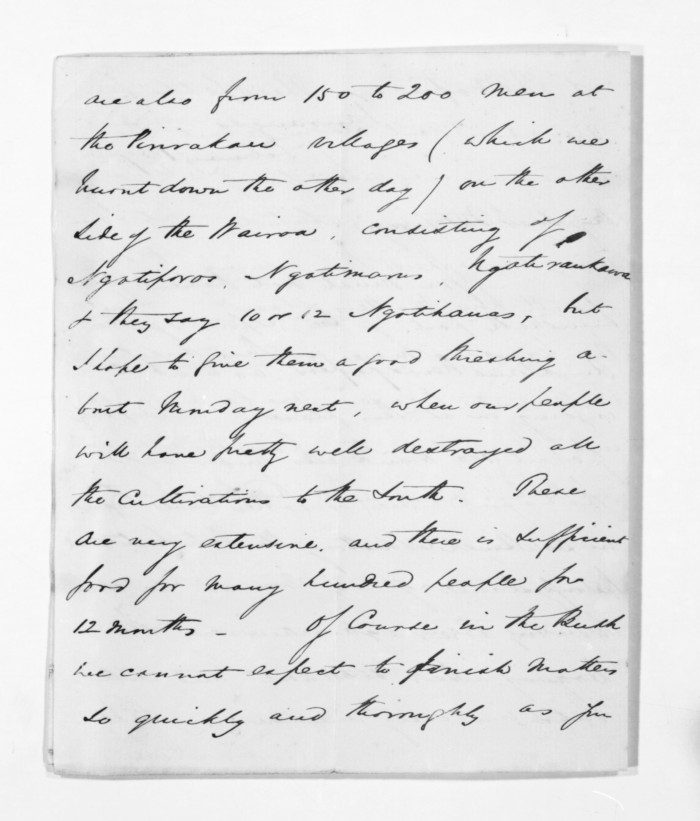 are also from 150 to 200 men at
the Pirirakau villages (which we
burnt down the other day) on the other
side of the Wairoa, consisting of
Ngatiporos, Ngatimarus, Ngatiraukawa
& they say 10 or 12 Ngatihauas, but
I hope to give them a good threshing a-
bout Monday next, when our people
will have pretty well destroyed all
the cultivations to the South. These
are very extensive, and there is sufficient
food for many hundred people for
12 months - Of Course in the Bush
we cannot expect to finish matters
so quickly and thoroughly as you